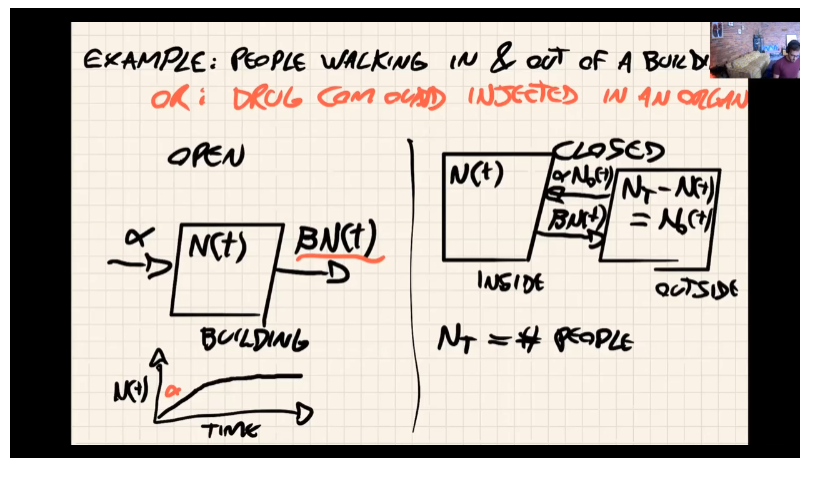 EXAMPLE: PEOPLE WALKING IN & OUT OF A BUILDI
OR: DRUG COMPOUND INJECTED IN AN ORGAN
OPEN
α
N(t)
BN(t)
BUILDING
N(t)
α
TIME
CLOSED
N(t)
αN₀(t)
BN(t)
N_T - N(t)
= N₀(t)
INSIDE
OUTSIDE
N_T = # PEOPLE